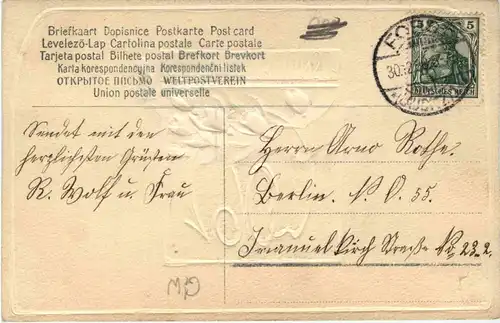 Briefkaart Dopisnice Postkarte Post card
Levelező-Lap Cartolina postale Carte postale
Tarjeta postal Bilhete postal Brefkort Brevkort
Karta korespondencyjna Korespondenční lístek
ОТКРЫТОЕ ПИСЬМО WELTPOSTVEREIN
Union postale universelle
5
DEUTSCHES REICH
Sendet mit den
herzlichsten Grüßen
R. Wolf u. Frau
Herrn Arno Rothe.
Berlin. N. O. 55.
Immanuelkirch Straße